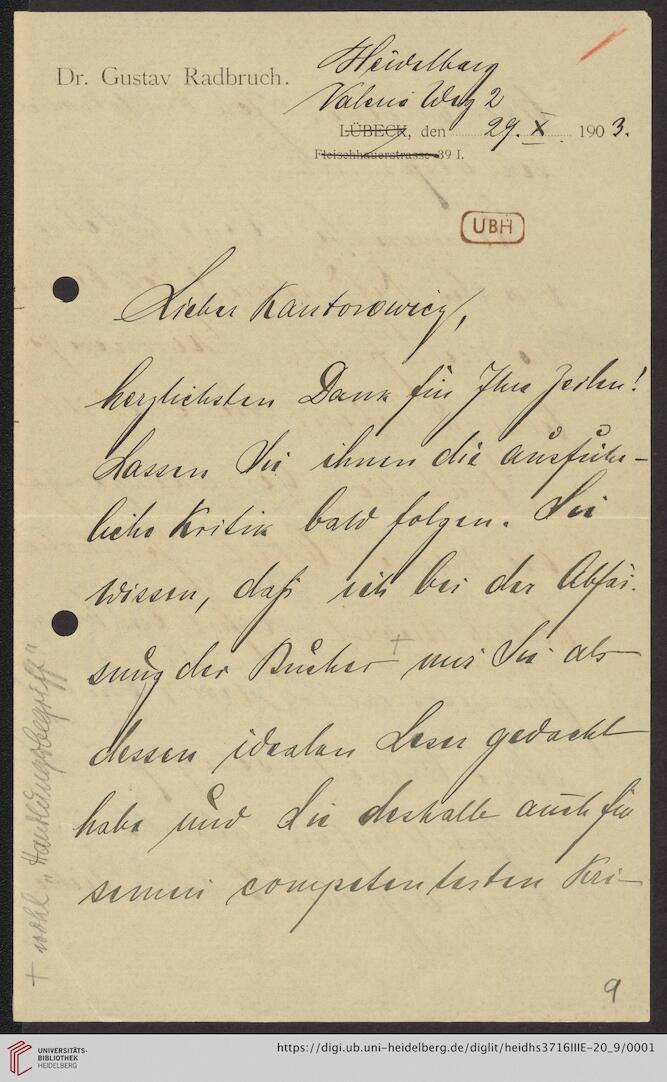 Dr. Gustav Radbruch.
Heidelberg
Weg 2
LÜBECK, den 29. X. 1903.
Fleischhauerstrasse 39 I.
UBH
Lieber Kantorowicz,
herzlichsten Dank für Ihre Zeilen!
Lassen Sie ihnen die ausführ-
liche Kritik bald folgen. Sie
wissen, daß ich bei der Abfas-
sung des Buches + nur Sie als
dessen idealen Leser gedacht
habe und Sie deshalb auch für
seinen competentesten Kri-
+ wohl „Handlungsbegriff"
9
UNIVERSITÄTS-
BIBLIOTHEK
HEIDELBERG
https://digi.ub.uni-heidelberg.de/diglit/heidhs3716IIIE-20_9/0001